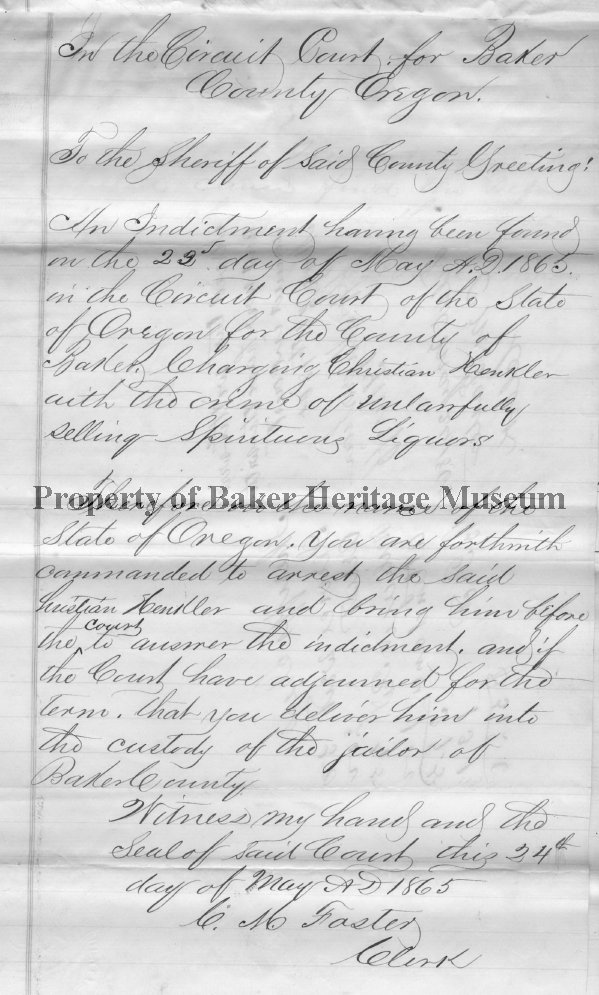 In the Circuit Court for Baker
County Oregon.
To the Sheriff of Said County Greeting!
An Indictment having been found
on the 22d day of May A.D. 1865.
in the Circuit Court of the State
of Oregon for the County of
Baker. Charging Christian Henkler
with the crime of unlawfully
selling Spirituous Liquors
Therefore in the name of the
Property of Baker Heritage Museum
State of Oregon. You are forthwith
commanded to arrest the said
hristian Henkler and bring him before
the court to answer the indictment. and if
the Court have adjourned for the
term. that you deliver him into
the custody of the jailor of
Baker County
Witness my hand and the
Seal of said Court this 24th
day of May A D 1865
C. M Foster
Clerk